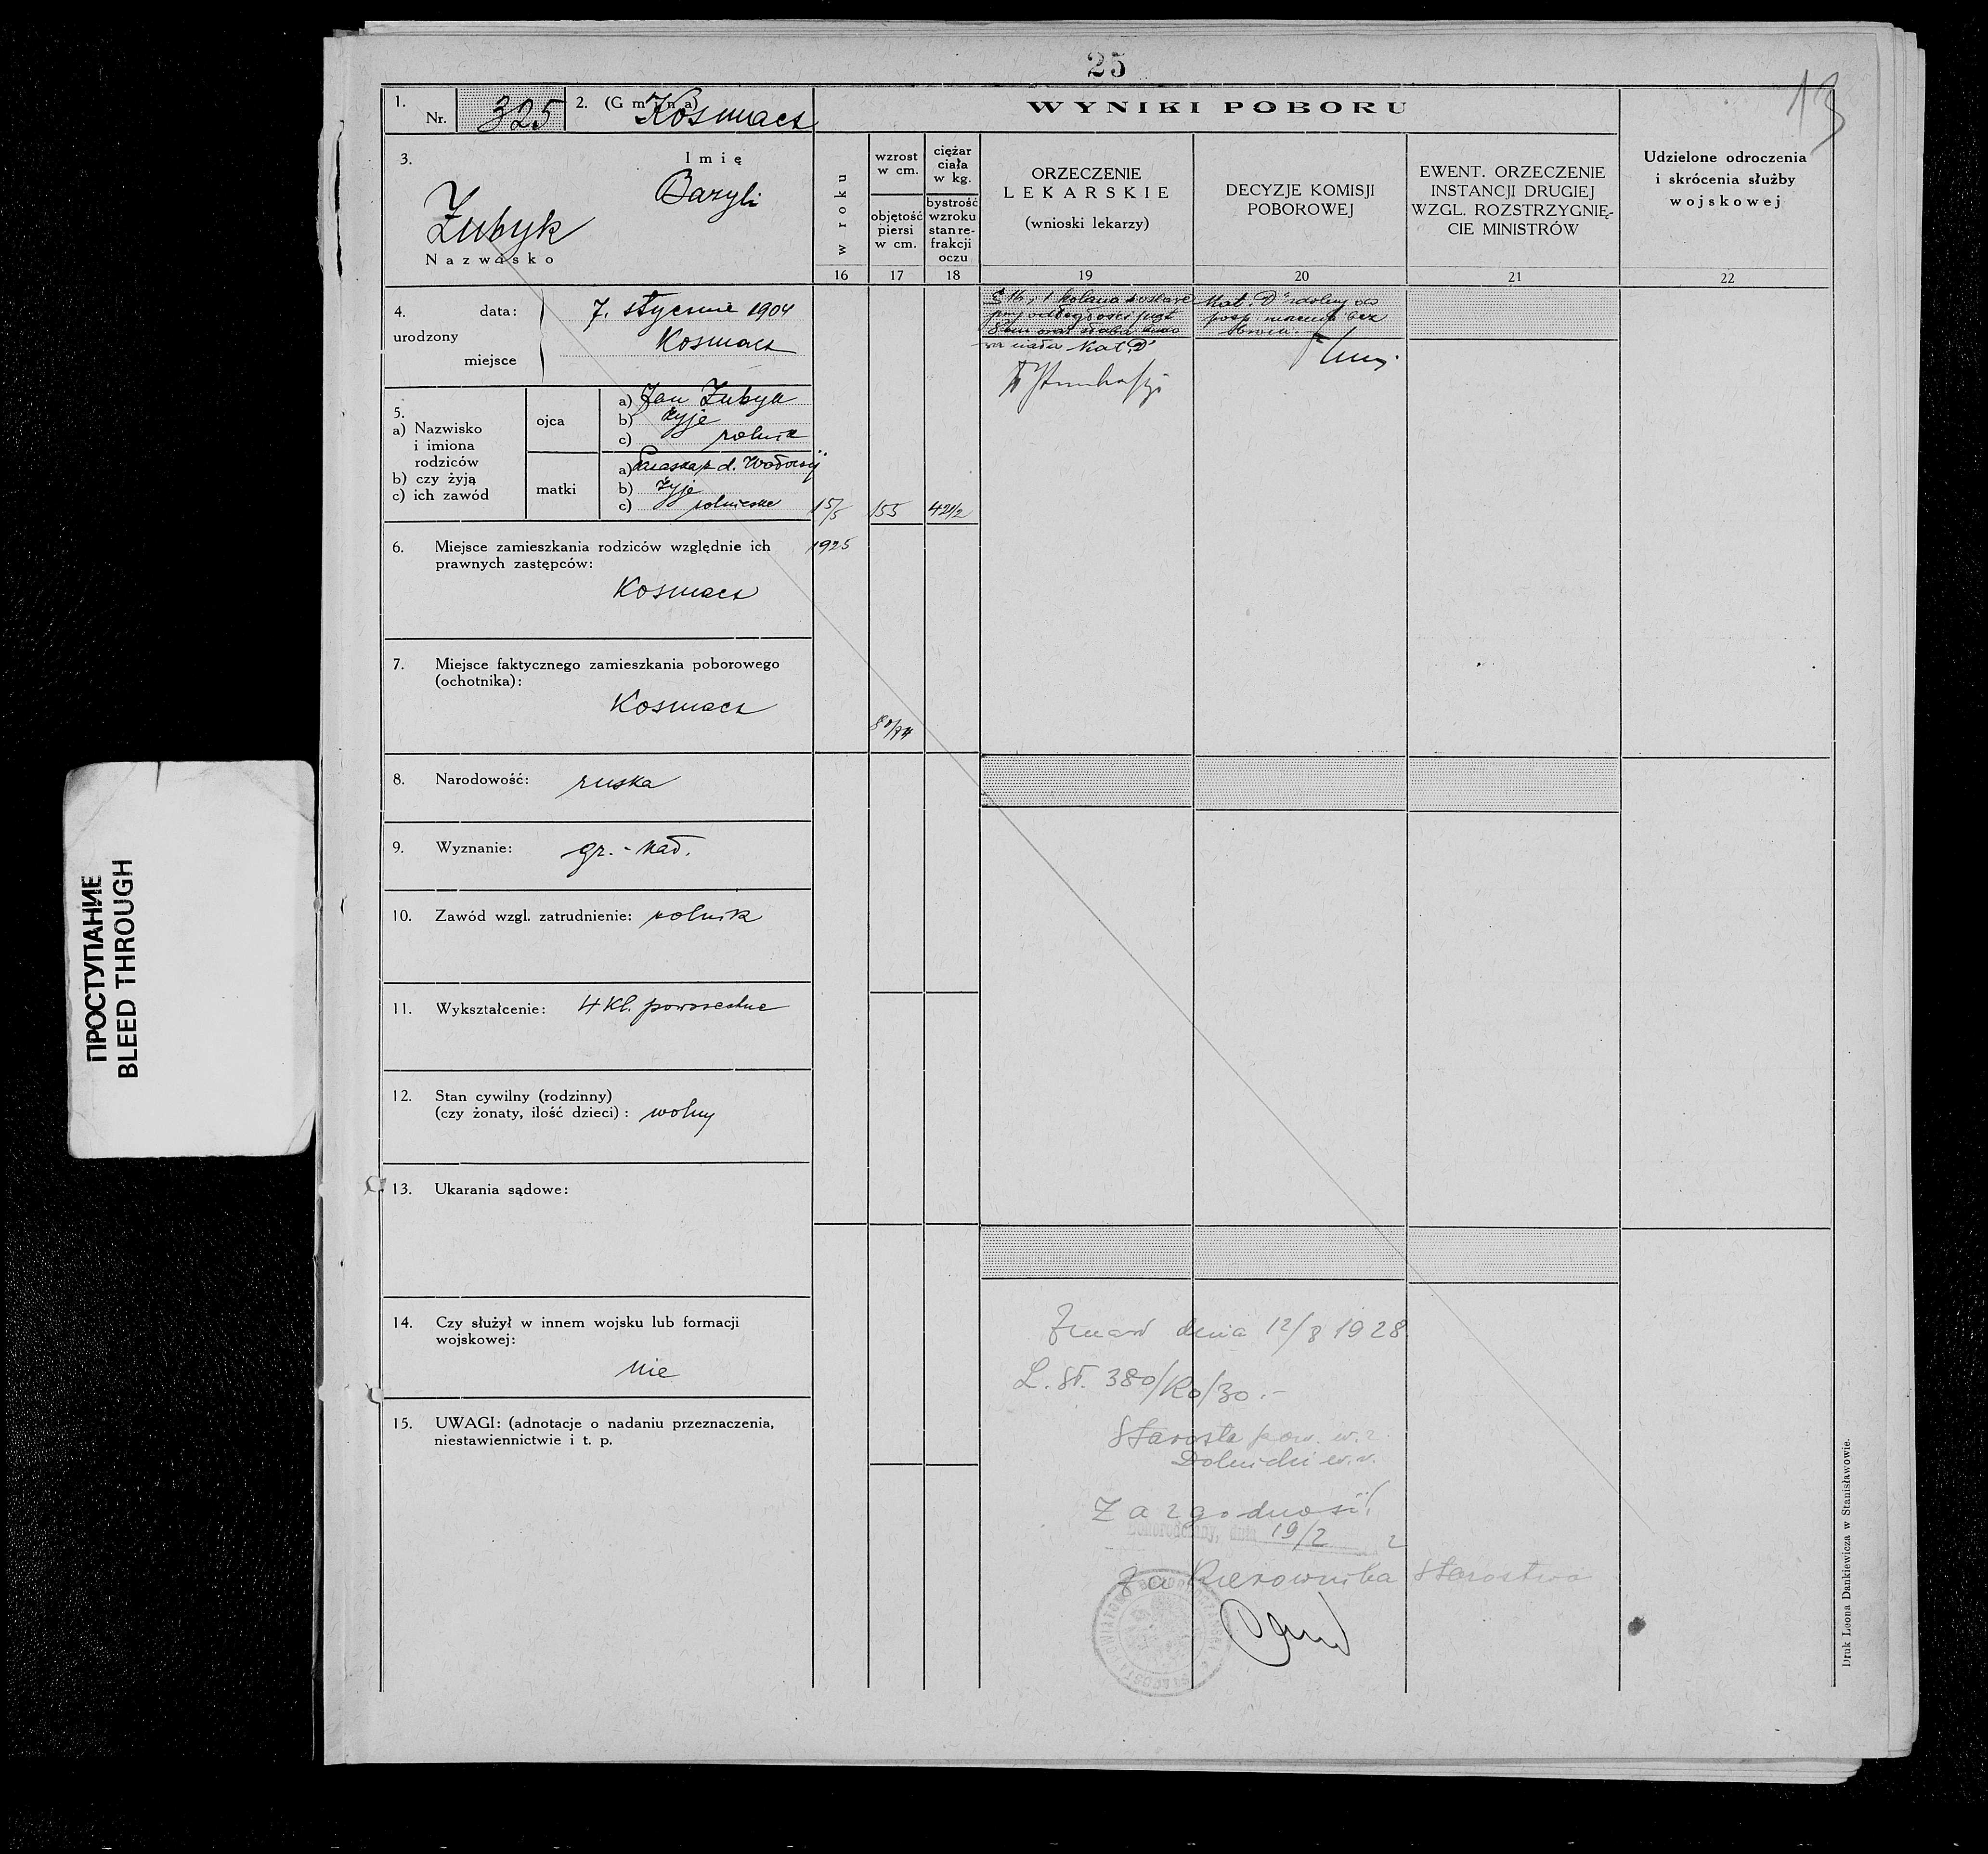 25
13
1. Nr. 325
2. (Gmina) Kosmacz
WYNIKI POBORU
3. Imię
Bazyli
Zubyk
Nazwisko
w roku
wzrost
w cm.
objętość
piersi
w cm.
ciężar
ciała
w kg.
bystrość
wzroku
stan re-
frakcji
oczu
ORZECZENIE
LEKARSKIE
(wnioski lekarzy)
DECYZJE KOMISJI
POBOROWEJ
EWENT. ORZECZENIE
INSTANCJI DRUGIEJ
WZGL. ROZSTRZYGNIĘ-
CIE MINISTRÓW
Udzielone odroczenia
i skrócenia służby
wojskowej
16 17 18 19 20 21 22
4.
urodzony
data: 7. stycznia 1904
miejsce Kosmacz
Kat. D
5.
a) Nazwisko
i imiona
rodziców
b) czy żyją
c) ich zawód
ojca
a) Jan Zubyk
b) żyje
c) rolnik
matki
a) Paraska z d.
b) żyje
c) rolniczka
15/5 155 42 1/2
1925
6. Miejsce zamieszkania rodziców względnie ich
prawnych zastępców:
Kosmacz
7. Miejsce faktycznego zamieszkania poborowego
(ochotnika):
Kosmacz
8. Narodowość: ruska
9. Wyznanie: gr.-kat.
10. Zawód wzgl. zatrudnienie: rolnik
11. Wykształcenie: 4 kl. powszechne
12. Stan cywilny (rodzinny)
(czy żonaty, ilość dzieci): wolny
13. Ukarania sądowe:
14. Czy służył w innem wojsku lub formacji
wojskowej:
nie
15. UWAGI: (adnotacje o nadaniu przeznaczenia,
niestawiennictwie i t. p.
Zmarł dnia 12/8 1928
L. st. 380/Ko/30.-
Starosta pow. w. z.
Dolnicki w.r.
Za zgodność!
19/2
Za Kierownika Starostwa
Druk Leona Dankiewicza w Stanisławowie.
ПРОСТУПАНИЕ
BLEED THROUGH